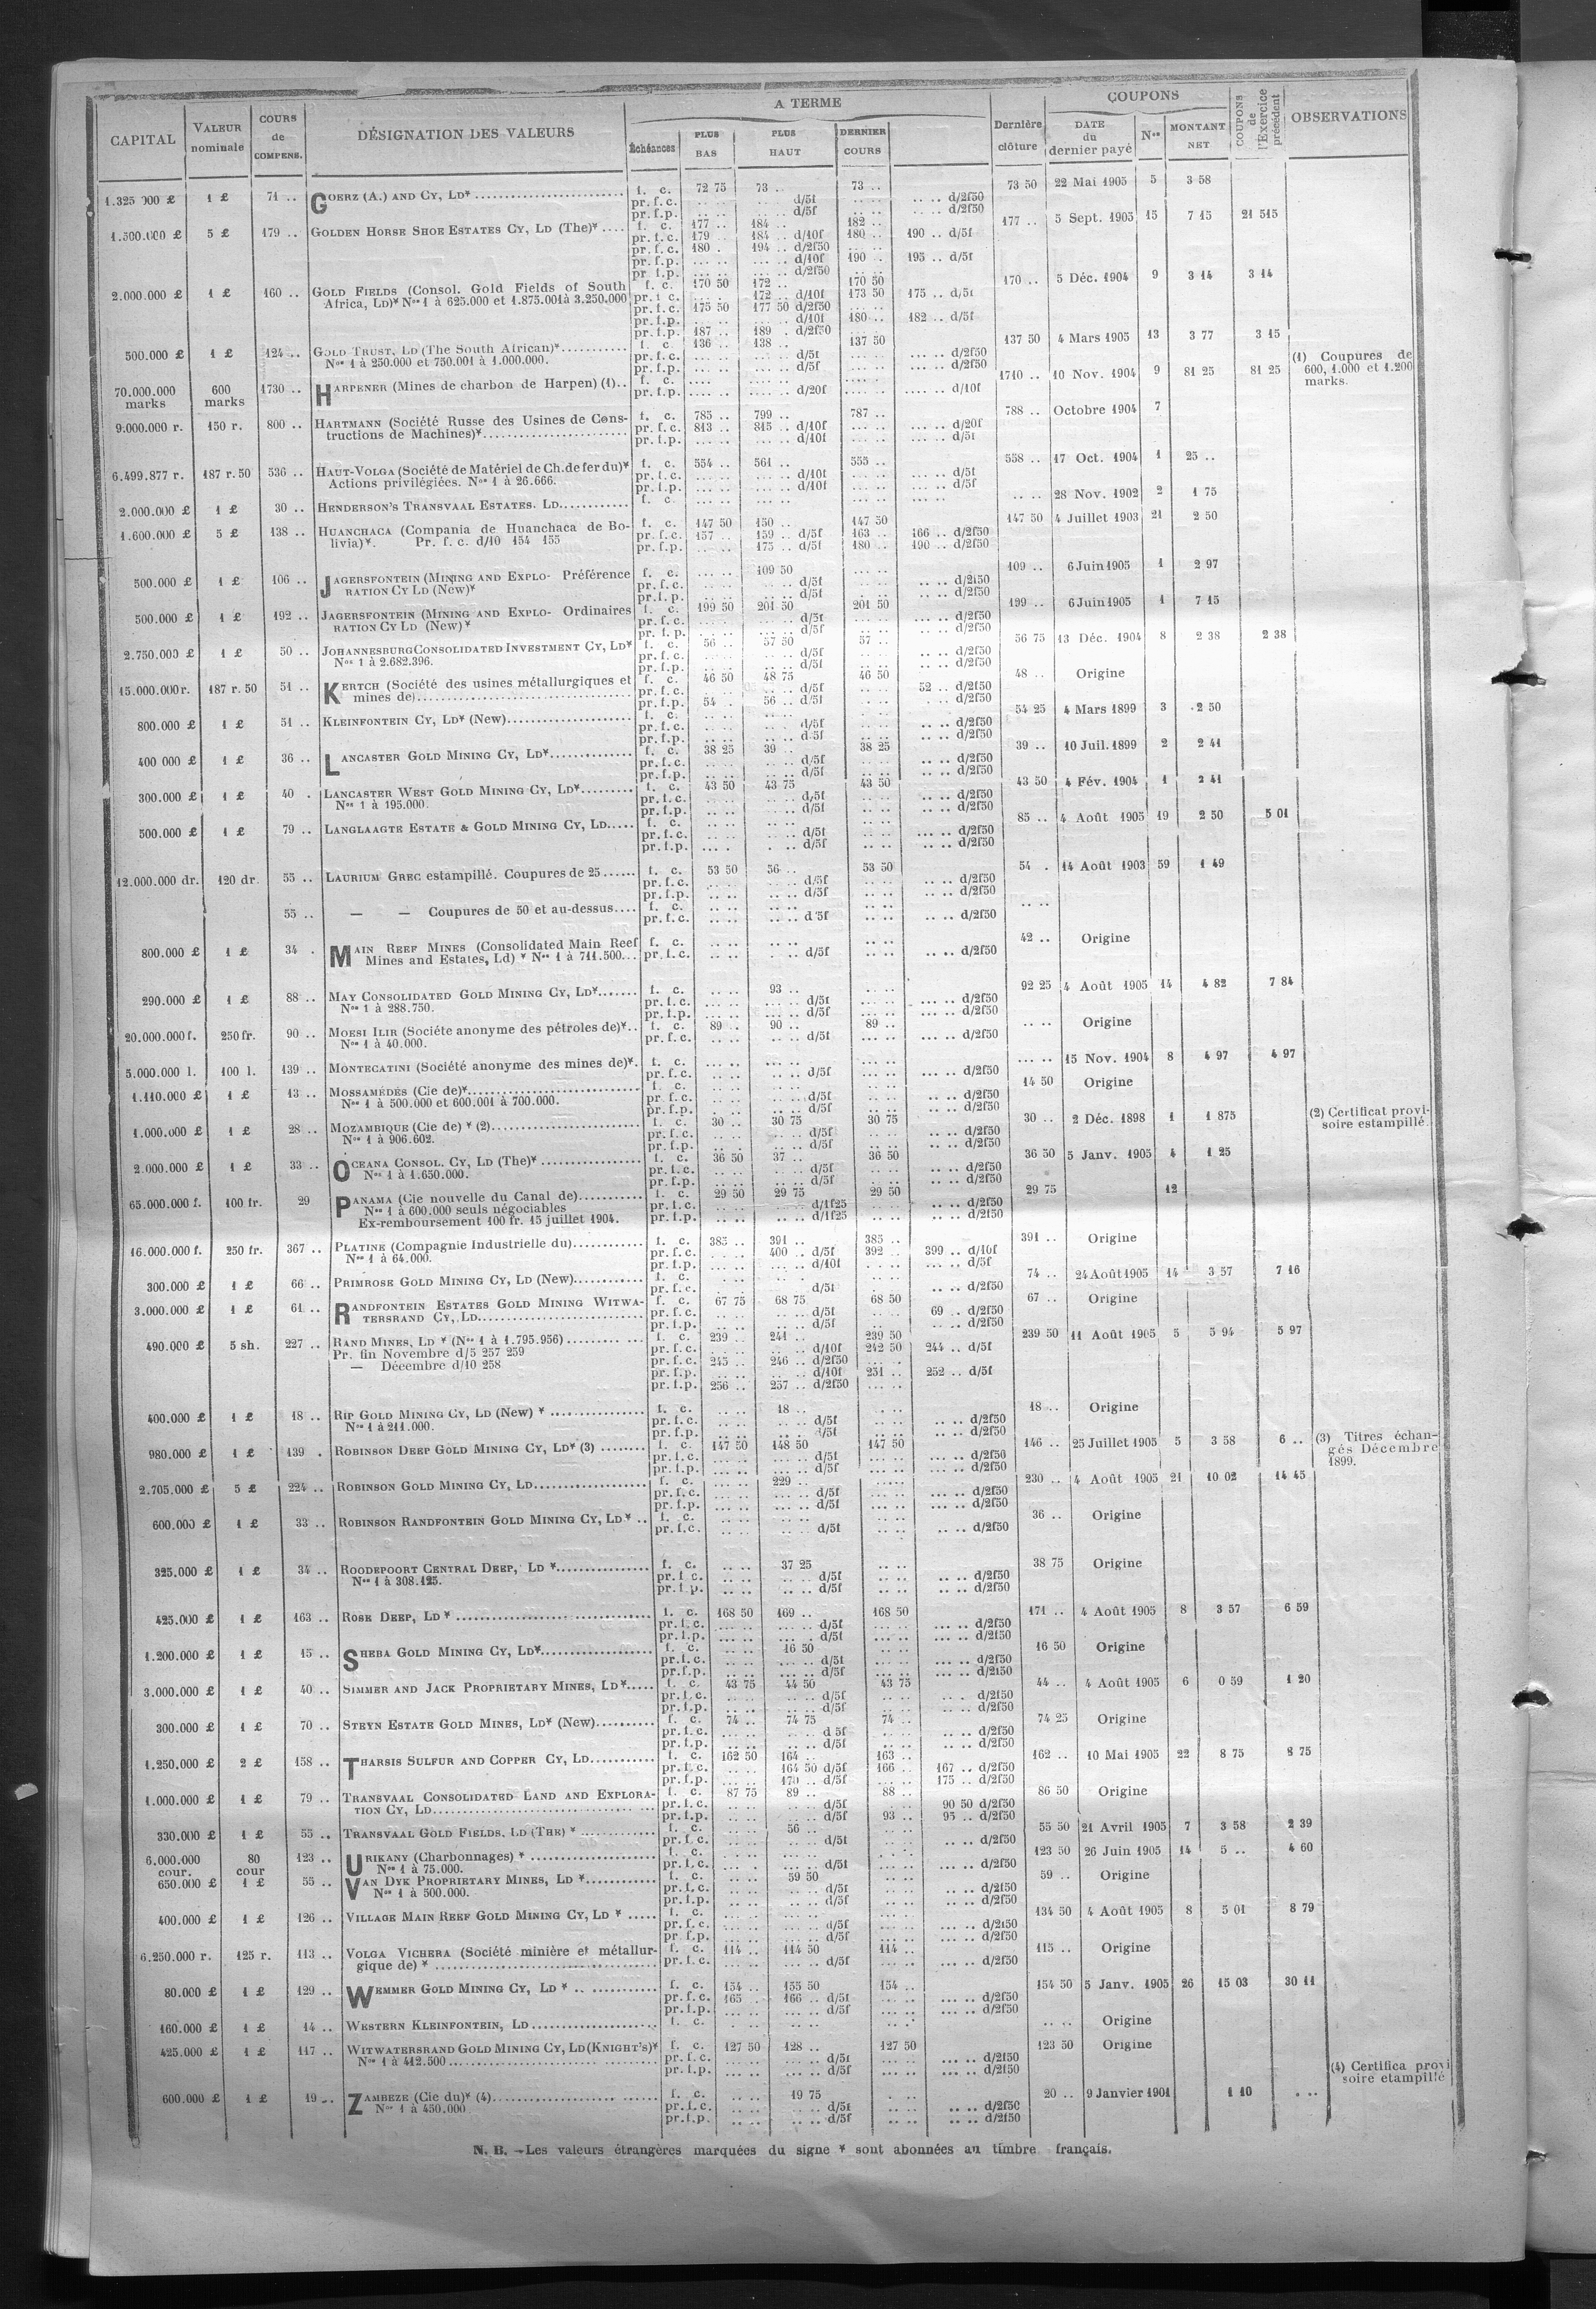 CAPITAL | VALEUR nominale | COURS de COMPENS. | DÉSIGNATION DES VALEURS | A TERME | Échéances | PLUS BAS | PLUS HAUT | DERNIER COURS | Dernière clôture | COUPONS | DATE du dernier payé | Nos | MONTANT NET | COUPONS de l'Exercice précédent | OBSERVATIONS
1.325 000 £ 1 £ 71 .. GOERZ (A.) AND CY, LD* f. c. 72 75 73 .. 73 .. 73 50 22 Mai 1905 5 3 58
pr. f. c. d/5f d/2f50
pr. f. p. d/5f d/2f50
1.500.000 £ 5 £ 179 .. GOLDEN HORSE SHOE ESTATES CY, LD (The)* f. c. 177 .. 184 .. 182 .. 177 .. 5 Sept. 1905 15 7 15 21 515
pr. f. c. 179 .. 184 .. d/10f 180 .. 190 .. d/5f
pr. f. c. 180 . 194 .. d/2f50
pr. f. p. d/10f 190 .. 195 .. d/5f
pr. f. p. d/2f50
2.000.000 £ 1 £ 160 .. GOLD FIELDS (Consol. Gold Fields of South f. c. 170 50 172 .. 170 50 170 .. 5 Déc. 1904 9 3 14 3 14
Africa, LD)* Nos 1 à 625.000 et 1.875.001 à 3.250.000 pr. f. c. 172 .. d/10f 173 50 175 .. d/5f
pr. f. c. 175 50 177 50 d/2f50
pr. f. p. d/10f 180 .. 182 .. d/5f
pr. f. p. 187 .. 189 . d/2f50
500.000 £ 1 £ 124 .. GOLD TRUST, LD (The South African)* f. c. 136 .. 138 .. 137 50 137 50 4 Mars 1905 13 3 77 3 15
Nos 1 à 250.000 et 750.001 à 1.000.000. pr. f. c. d/5f d/2f50
pr. f. p. d/5f d/2f50
(1) Coupures de 600, 1.000 et 1.200 marks.
70.000.000 marks 600 marks 1730 .. HARPENER (Mines de charbon de Harpen) (1) f. c. 1710 .. 10 Nov. 1904 9 81 25 81 25
pr. f. p. d/20f d/10f
9.000.000 r. 150 r. 800 .. HARTMANN (Société Russe des Usines de Cons- f. c. 785 .. 799 .. 787 .. 788 .. Octobre 1904 7
tructions de Machines)* pr. f. c. 813 .. 815 .. d/10f d/20f
pr. f. p. d/10f d/5f
6.499.877 r. 187 r. 50 536 .. HAUT-VOLGA (Société de Matériel de Ch. de fer du)* f. c. 554 .. 561 .. 555 .. 558 .. 17 Oct. 1904 1 25 ..
Actions privilégiées. Nos 1 à 26.666. pr. f. c. d/10f d/5f
pr. f. p. d/10f d/5f
2.000.000 £ 1 £ 30 .. HENDERSON'S TRANSVAAL ESTATES. LD f. c. 28 Nov. 1902 2 1 75
1.600.000 £ 5 £ 138 .. HUANCHACA (Compania de Huanchaca de Bo- f. c. 147 50 150 .. 147 50 147 50 4 Juillet 1903 21 2 50
livia)*. Pr. f. c. d/10 154 155 pr. f. c. 157 .. 159 .. d/5f 163 .. 166 .. d/2f50
pr. f. p. 175 .. d/5f 180 .. 190 .. d/2f50
500.000 £ 1 £ 106 .. JAGERSFONTEIN (MINING AND EXPLO- Préférence f. c. 109 50 109 .. 6 Juin 1905 1 2 97
RATION CY LD (New)* pr. f. c. d/5f d/2f50
pr. f. p. d/5f d/2f50
500.000 £ 1 £ 192 .. JAGERSFONTEIN (MINING AND EXPLO- Ordinaires f. c. 199 50 201 50 201 50 199 .. 6 Juin 1905 1 7 15
RATION CY LD (New)* pr. f. c. d/5f d/2f50
pr. f. p. d/5f d/2f50
2.750.000 £ 1 £ 50 .. JOHANNESBURG CONSOLIDATED INVESTMENT CY, LD* f. c. 56 .. 57 50 57 .. 56 75 13 Déc. 1904 8 2 38 2 38
Nos 1 à 2.682.396. pr. f. c. d/5f d/2f50
pr. f. p. d/5f d/2f50
15.000.000 r. 187 r. 50 51 .. KERTCH (Société des usines métallurgiques et f. c. 46 50 48 75 46 50 48 .. Origine
mines de) pr. f. c. d/5f 52 .. d/2f50
pr. f. p. 54 .. 56 .. d/5f d/2f50
800.000 £ 1 £ 51 .. KLEINFONTEIN CY, LD* (New) f. c. 54 25 4 Mars 1899 3 2 50
pr. f. c. d/5f d/2f50
pr. f. p. d 5f d/2f50
400 000 £ 1 £ 36 .. LANCASTER GOLD MINING CY, LD* f. c. 38 25 39 .. 38 25 39 .. 10 Juil. 1899 2 2 41
pr. f. c. d/5f d/2f50
pr. f. p. d/5f d/2f50
300.000 £ 1 £ 40 . LANCASTER WEST GOLD MINING CY, LD* f. c. 43 50 43 75 43 50 43 50 4 Fév. 1904 1 2 41
Nos 1 à 195.000. pr. f. c. d/5f d/2f50
pr. f. p. d/5f d/2f50
500.000 £ 1 £ 79 .. LANGLAAGTE ESTATE & GOLD MINING CY, LD f. c. 85 .. 4 Août 1905 19 2 50 5 01
pr. f. c. d/5f d/2f50
pr. f. p. d/5f d/2f50
12.000.000 dr. 120 dr. 55 .. LAURIUM GREC estampillé. Coupures de 25 f. c. 53 50 56 .. 53 50 54 . 14 Août 1903 59 1 49
pr. f. c. d/5f d/2f50
pr. f. p. d/5f d/2f50
55 .. — — Coupures de 50 et au-dessus f. c.
pr. f. c. d 5f d/2f50
800.000 £ 1 £ 34 . MAIN REEF MINES (Consolidated Main Reef f. c. 42 .. Origine
Mines and Estates, Ld) * Nos 1 à 711.500 pr. f. c. d/5f d/2f50
290.000 £ 1 £ 88 .. MAY CONSOLIDATED GOLD MINING CY, LD* f. c. 93 .. 92 25 4 Août 1905 14 4 82 7 84
Nos 1 à 288.750. pr. f. c. d/5f d/2f50
pr. f. p. d/5f d/2f50
20.000.000 f. 250 fr. 90 .. MOESI ILIR (Societe anonyme des pétroles de)* f. c. 89 .. 90 .. 89 .. Origine
Nos 1 à 40.000. pr. f. c. d/5f d/2f50
5.000.000 l. 100 l. 139 .. MONTECATINI (Société anonyme des mines de)* f. c. 15 Nov. 1904 8 4 97 4 97
pr. f. c. d/5f d/2f50
1.110.000 £ 1 £ 13 .. MOSSAMÉDÈS (Cie de)* f. c. 14 50 Origine
Nos 1 à 500.000 et 600.001 à 700.000. pr. f. c. d/5f d/2f50
pr. f. p. d/5f d/2f50
1.000.000 £ 1 £ 28 .. MOZAMBIQUE (Cie de) * (2) f. c. 30 .. 30 75 30 75 30 .. 2 Déc. 1898 1 1 875 (2) Certificat provi-
soire estampillé.
Nos 1 à 906.602. pr. f. c. d/5f d/2f50
pr. f. p. d/5f d/2f50
2.000.000 £ 1 £ 33 .. OCEANA CONSOL. CY, LD (The)* f. c. 36 50 37 .. 36 50 36 50 5 Janv. 1905 4 1 25
Nos 1 à 1.650.000. pr. f. c. d/5f d/2f50
pr. f. p. d/5f d/2f50
65.000.000 f. 100 fr. 29 PANAMA (Cie nouvelle du Canal de) f. c. 29 50 29 75 29 50 29 75 12
Nos 1 à 600.000 seuls négociables pr. f. c. d/1f25 d/2f50
Ex-remboursement 100 fr. 15 juillet 1904. pr. f. p. d/1f25 d/2f50
16.000.000 f. 250 fr. 367 .. PLATINE (Compagnie Industrielle du) f. c. 385 .. 391 .. 385 .. 391 .. Origine
Nos 1 à 64.000. pr. f. c. 400 .. d/5f 392 .. 399 .. d/10f
pr. f. p. d/10f d/5f
300.000 £ 1 £ 66 .. PRIMROSE GOLD MINING CY, LD (New) f. c. 74 .. 24 Août 1905 14 3 57 7 16
pr. f. c. d/5f d/2f50
3.000.000 £ 1 £ 61 .. RANDFONTEIN ESTATES GOLD MINING WITWA- f. c. 67 75 68 75 68 50 67 .. Origine
TERSRAND CY, LD pr. f. c. d/5f 69 .. d/2f50
pr. f. p. d/5f d/2f50
490.000 £ 5 sh. 227 .. RAND MINES, LD * (Nos 1 à 1.795.956) f. c. 239 .. 241 .. 239 50 239 50 11 Août 1905 5 5 94 5 97
Pr. fin Novembre d/5 257 259 pr. f. c. d/10f 242 50 244 .. d/5f
— Décembre d/10 258 pr. f. c. 245 .. 246 .. d/2f50
pr. f. p. d/10f 251 .. 252 .. d/5f
pr. f. p. 256 .. 257 .. d/2f50
400.000 £ 1 £ 18 .. RIP GOLD MINING CY, LD (New) * f. c. 18 .. 18 .. Origine
Nos 1 à 211.000. pr. f. c. d/5f d/2f50
pr. f. p. d/5f d/2f50
980.000 £ 1 £ 139 . ROBINSON DEEP GOLD MINING CY, LD* (3) f. c. 147 50 148 50 147 50 146 .. 25 Juillet 1905 5 3 58 6 .. (3) Titres échan-
gés Décembre
1899.
pr. f. c. d/5f d/2f50
pr. f. p. d/5f d/2f50
2.705.000 £ 5 £ 224 .. ROBINSON GOLD MINING CY, LD f. c. 229 .. 230 .. 4 Août 1905 21 10 02 14 45
pr. f. c. d/5f d/2f50
pr. f. p. d/5f d/2f50
600.000 £ 1 £ 33 .. ROBINSON RANDFONTEIN GOLD MINING CY, LD* f. c. 36 .. Origine
pr. f. c. d/5f d/2f50
325.000 £ 1 £ 34 .. ROODEPOORT CENTRAL DEEP, LD * f. c. 37 25 38 75 Origine
Nos 1 à 308.125. pr. f. c. d/5f d/2f50
pr. f. p. d/5f d/2f50
425.000 £ 1 £ 163 .. ROSE DEEP, LD * f. c. 168 50 169 .. 168 50 171 .. 4 Août 1905 8 3 57 6 59
pr. f. c. d/5f d/2f50
pr. f. p. d/5f d/2f50
1.200.000 £ 1 £ 15 .. SHEBA GOLD MINING CY, LD* f. c. 16 50 16 50 Origine
pr. f. c. d/5f d/2f50
pr. f. p. d/5f d/2f50
3.000.000 £ 1 £ 40 .. SIMMER AND JACK PROPRIETARY MINES, LD* f. c. 43 75 44 50 43 75 44 .. 4 Août 1905 6 0 59 1 20
pr. f. c. d/5f d/2f50
pr. f. p. d/5f d/2f50
300.000 £ 1 £ 70 .. STEYN ESTATE GOLD MINES, LD* (New) f. c. 74 .. 74 75 74 .. 74 25 Origine
pr. f. c. d 5f d/2f50
pr. f. p. d/5f d/2f50
1.250.000 £ 2 £ 158 .. THARSIS SULFUR AND COPPER CY, LD f. c. 162 50 164 .. 163 .. 162 .. 10 Mai 1905 22 8 75 8 75
pr. f. c. 164 50 d/5f 166 .. 167 .. d/2f50
pr. f. p. 170 .. d/5f 175 .. d/2f50
1.000.000 £ 1 £ 79 .. TRANSVAAL CONSOLIDATED LAND AND EXPLORA- f. c. 87 75 89 .. 88 .. 86 50 Origine
TION CY, LD pr. f. c. d/5f 90 50 d/2f50
pr. f. p. d/5f 93 .. 95 .. d/2f50
330.000 £ 1 £ 55 .. TRANSVAAL GOLD FIELDS, LD (THE) * f. c. 56 .. 55 50 21 Avril 1905 7 3 58 2 39
pr. f. c. d/5f d/2f50
6.000.000 cour. 80 cour 123 .. URIKANY (Charbonnages) * f. c. 123 50 26 Juin 1905 14 5 .. 4 60
Nos 1 à 75.000. pr. f. c. d/5f d/2f50
650.000 £ 1 £ 55 .. VAN DYK PROPRIETARY MINES, LD * f. c. 59 50 59 .. Origine
Nos 1 à 500.000. pr. f. c. d/5f d/2f50
pr. f. p. d/5f d/2f50
400.000 £ 1 £ 126 .. VILLAGE MAIN REEF GOLD MINING CY, LD * f. c. 134 50 4 Août 1905 8 5 01 8 79
pr. f. c. d/5f d/2f50
pr. f. p. d/5f d/2f50
6.250.000 r. 125 r. 113 .. VOLGA VICHERA (Société minière et métallur- f. c. 114 .. 114 50 114 .. 115 .. Origine
gique de) * pr. f. c. d/5f d/2f50
80.000 £ 1 £ 129 .. WEMMER GOLD MINING CY, LD * f. c. 154 .. 155 50 154 .. 154 50 5 Janv. 1905 26 15 03 30 11
pr. f. c. 165 .. 166 .. d/5f d/2f50
pr. f. p. d/5f d/2f50
160.000 £ 1 £ 14 .. WESTERN KLEINFONTEIN, LD f. c. Origine
425.000 £ 1 £ 117 .. WITWATERSRAND GOLD MINING CY, LD (KNIGHT'S)* f. c. 127 50 128 .. 127 50 123 50 Origine
Nos 1 à 412.500 pr. f. c. d/5f d/2f50
pr. f. p. d/5f d/2f50
(4) Certifica provi
soire etampillé
600.000 £ 1 £ 19 .. ZAMBEZE (Cie du)* (4) f. c. 19 75 20 .. 9 Janvier 1901 1 10
Nos 1 à 450.000 pr. f. c. d/5f d/2f50
pr. f. p. d/5f d/2f50
N. B. — Les valeurs étrangères marquées du signe * sont abonnées au timbre français.